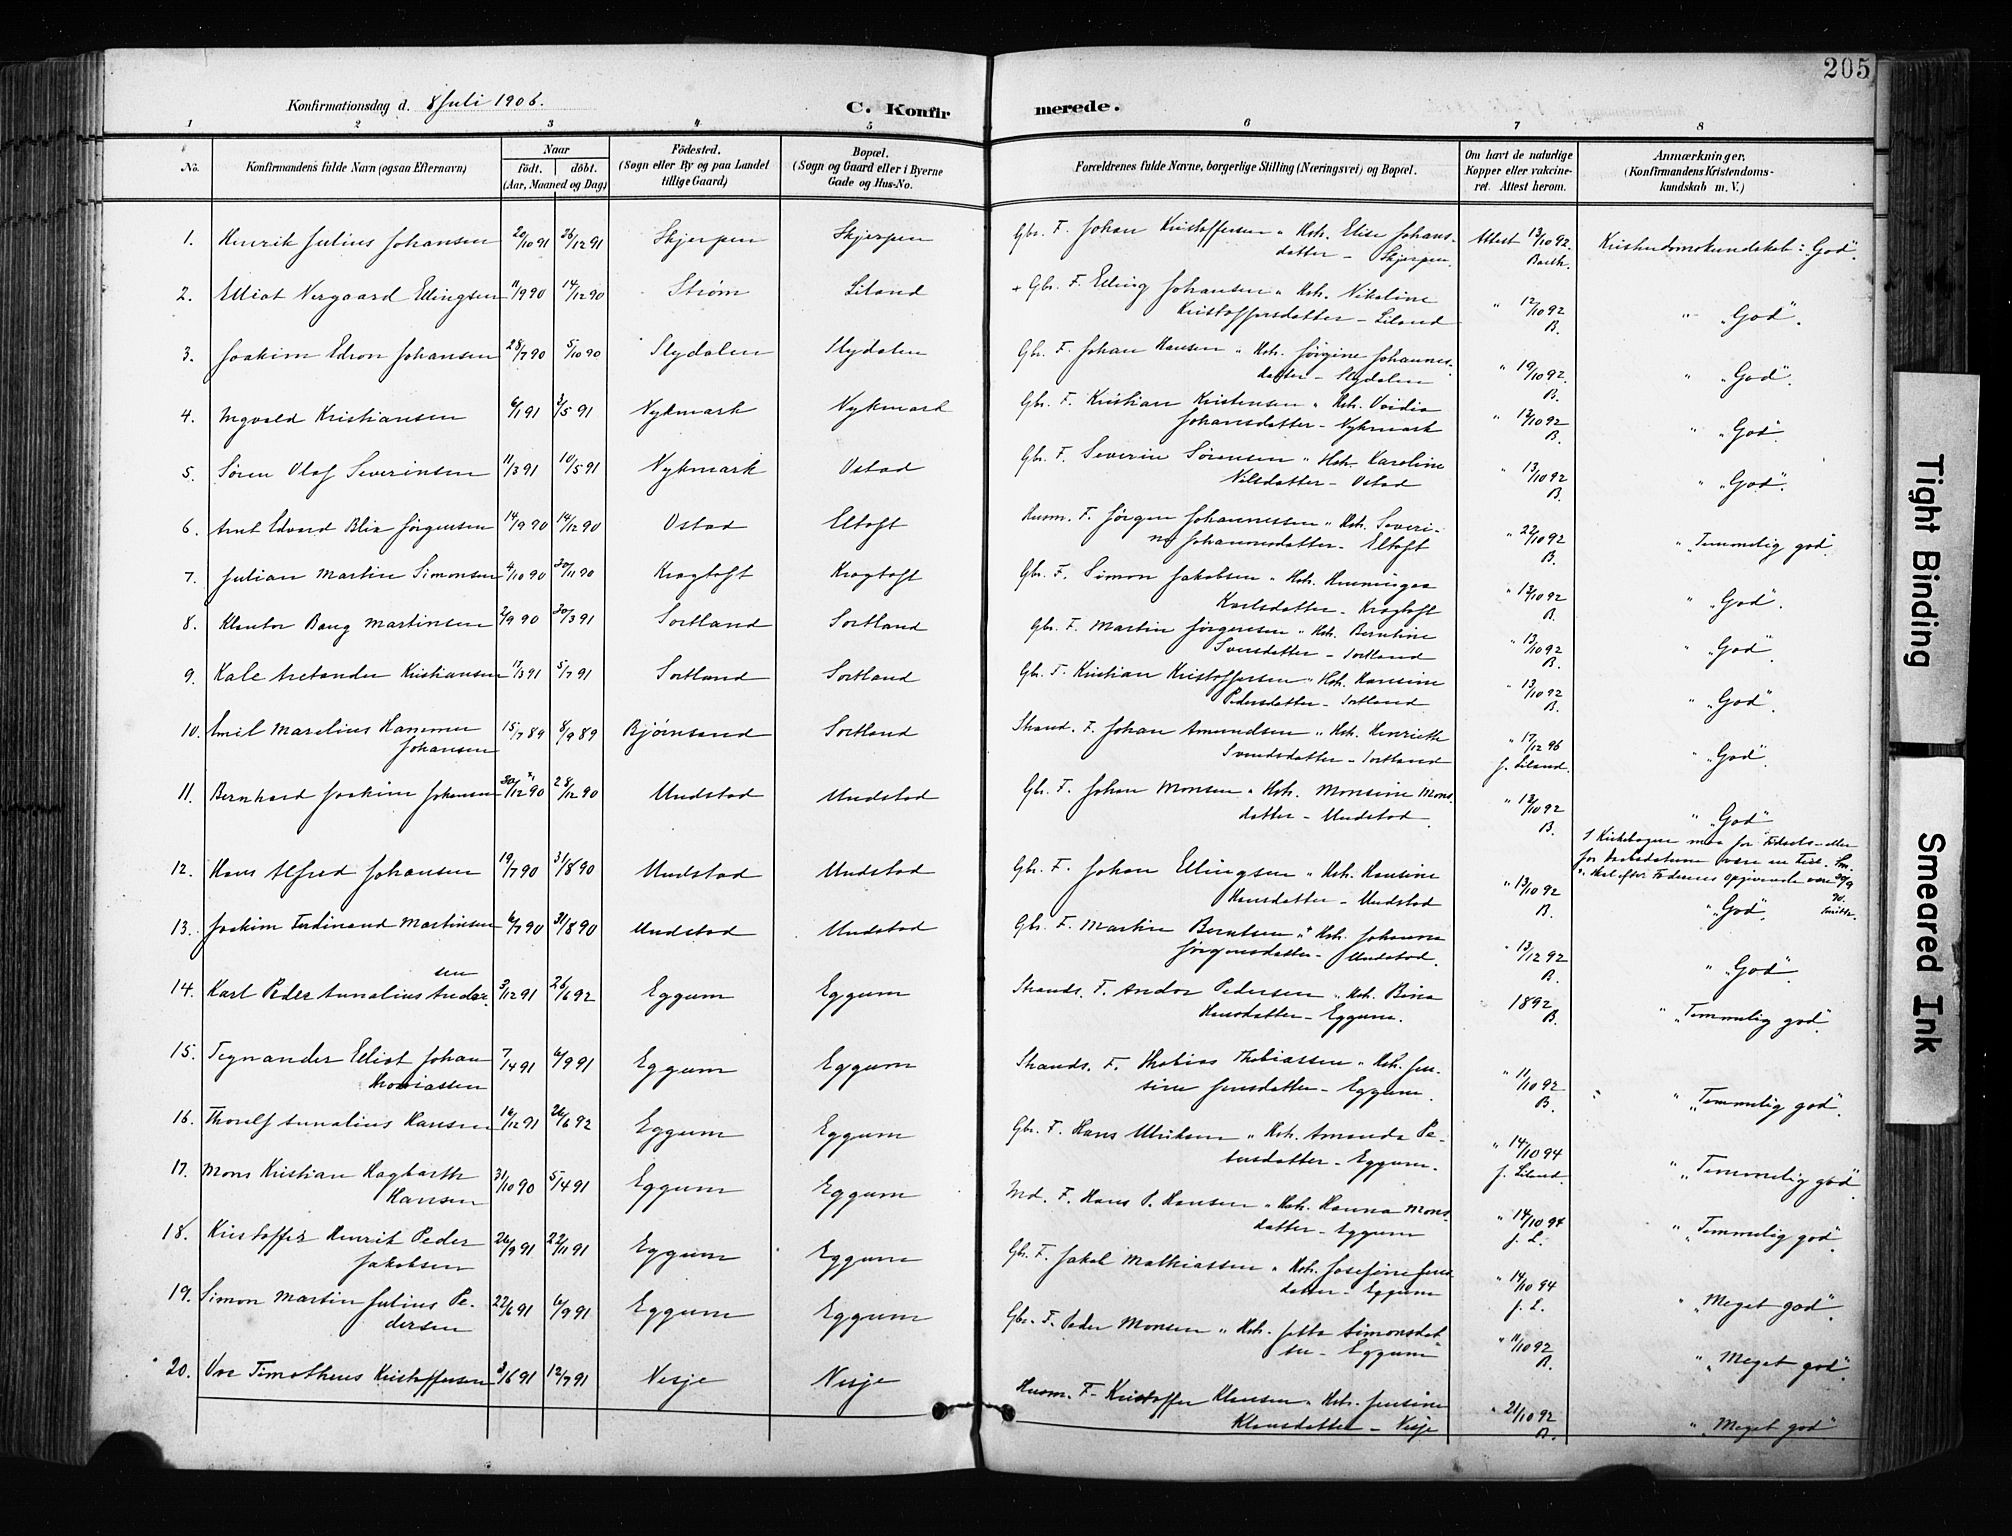 205
Konfirmationsdag d. 8 Juli 1906.
C. Konfirmerede.
1 2 3 4 5 6 7 8
No. Konfirmandens fulde Navn (ogsaa Efternavn) Naar født. døbt. (Aar, Maaned og Dag) Fødested. (Sogn eller By og paa Landet tillige Gaard) Bopæl. (Sogn og Gaard eller i Byerne Gade og Hus-No. Forældrenes fulde Navne, borgerlige Stilling (Næringsvei) og Bopæl. Om havt de naturlige Kopper eller vaccineret. Attest herom. Anmærkninger. (Konfirmandens Kristendomskundskab m. V.)
1. Henrik Julius Johansen 20/10 91 26/12 91 Skjerpen Skjerpen Gbr. F. Johan Kristoffersen " Hstr. Elise Johans- Attest 13/10 92. Kristendomskundskab: "God".
datter – Skjerpen. Barth.
2. Elliot Nergaard Ellingsen 11/9 90 14/12 90 Strøm Liland + Gbr. F. Elling Johansen " Hstr. Nikoline " 12/10 92 " "God".
Kristoffersdatter – Liland B.
3. Joakim Edron Johansen 28/7 90 5/10 90 Slydalen Slydalen Gbr. F. Johan Hansen " Hstr. Jørgine Johannes- " 19/10 92. " "God".
datter – Slydalen B.
4. Ingvald Kristiansen 6/1 91 3/5 91 Nykmark Nykmark Gbr. F. Kristian Kristensen " Hstr. Ovidia " 12/10 92 " "God".
Johansdatter – Nykmark B.
5. Søren Olaf Severinsen 11/3 91 10/5 91 Nykmark Ostad Gbr. F. Severin Sørensen " Hstr. Karoline " 13/10 92 " "God".
Nilsdatter – Ostad B.
6. Arnt Edvard Blix Jørgensen 14/9 90 14/12 90 Ostad Eltoft Husm. F. Jørgen Johannessen " Hstr. Severi- " 22/10 92 " "Temmelig god".
ne Johannesdatter – Eltoft B.
7. Julian Martin Simonsen 4/10 90 30/11 90 Kragtoft Kragtoft Gbr. F. Simon Jakobsen " Hstr. Henningea " 12/10 92 " "God".
Karlsdatter – Kragtoft B.
8. Klentor Bang Martinsen 2/9 90 30/3 91 Sortland Sortland Gbr. F. Martin Jørgensen " Hstr. Berntine " 13/10 92 " "God".
Svensdatter – Sortland B.
9. Kale Aretander Kristiansen 17/3 91 5/7 91 Sortland Sortland Gbr. F. Kristian Kristoffersen " Hstr. Hansine " 13/10 92 " "God".
Pedersdatter – Sortland B.
10. Emil Marelius Hammer 15/7 89 8/9 89 Bjørnsand Sortland Strand. F. Johan Amundsen " Hstr. Henriette " 17/12 96 " "God".
Johansen Svendsdatter – Sortland J. Liland.
11. Bernhard Joakim Johansen 30/12 90 28/12 90 Undstad Undstad Gbr. F. Johan Monsen " Hstr. Monsine Mons- " 12/10 92 " "God"
datter – Undstad. B.
I Kirkebogen maa for Fødsels- eller
for Daabsdatum være en Feil.
skal efter Faderens opgivende være 30/9
90.
12. Hans Alfred Johansen 19/7 90 31/8 90 Undstad Undstad Gbr. F. Johan Ellingsen " Hstr. Hansine " 13/10 92 " "God".
Hansdatter – Undstad B.
13. Joakim Ferdinand Martinsen 6/7 90 31/8 90 Undstad Undstad Gbr. F. Martin Berntsen " Hstr. Johanna " 13/12 92 " "God".
Jørgensdatter – Undstad. B.
14. Karl Peder Annalius Andor- 3/12 91 26/6 92 Eggum Eggum Strands. F. Andor Pedersen " Hstr. Bina 1892 " "Temmelig god".
sen Hansdatter – Eggum. B.
15. Tegnander Elliot Johan 7/4 91 6/9 91 Eggum Eggum Strands. F. Thobias Thobiassen " Hstr. Jen- " 11/10 92 " "Temmelig god".
Thobiassen sine Jensdatter – Eggum. B.
16. Thorolf Annalius Hansen 16/12 91 26/6 92 Eggum Eggum Gbr. F. Hans Ulriksen " Hstr. Amanda Pe- " 14/10 94 " "Temmelig god".
tersdatter – Eggum. J. Liland.
17. Mons Kristian Hagbarth 31/10 90 5/4 91 Eggum Eggum Md. F. Hans P. Hansen " Hstr. Hanna Mons- " 14/10 94 " "Temmelig god".
Hansen datter – Eggum J. L.
18. Kristoffer Henrik Peder 26/9 91 22/11 91 Eggum Eggum Gbr. F. Jakob Mathiassen " Hstr. Josefine Jens- " 14/10 94 " "Meget god".
Jakobsen datter – Eggum J. L.
19. Simon Martin Julius Pe- 22/6 91 6/9 91 Eggum Eggum Gbr. F. Peder Monsen " Hstr. Jetta Simonsdat- " 11/10 92 " "Meget god".
dersen ter – Eggum B.
20. Ove Timotheus Kristoffersen 3/6 91 12/7 91 Nesje Nesje Husm. F. Kristoffer Klausen " Hstr. Jensine " 21/10 92 " "Meget god"
Klausdatter – Nesje B.
Tight Binding
Smeared Ink